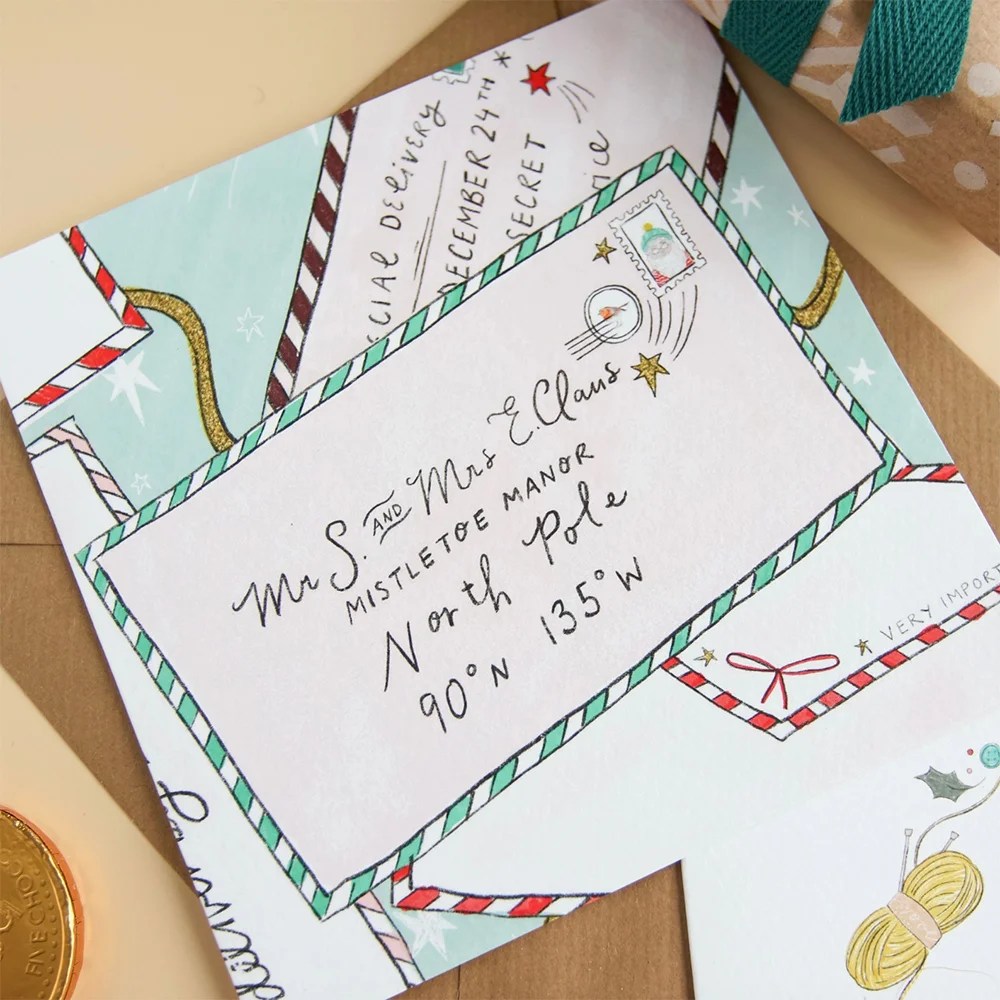 SPECIAL DELIVERY
DECEMBER 24TH
SECRET
Mr S. AND Mrs E. Claus
MISTLETOE MANOR
North Pole
90° N 135° W
VERY IMPORT
FIVE CHOC